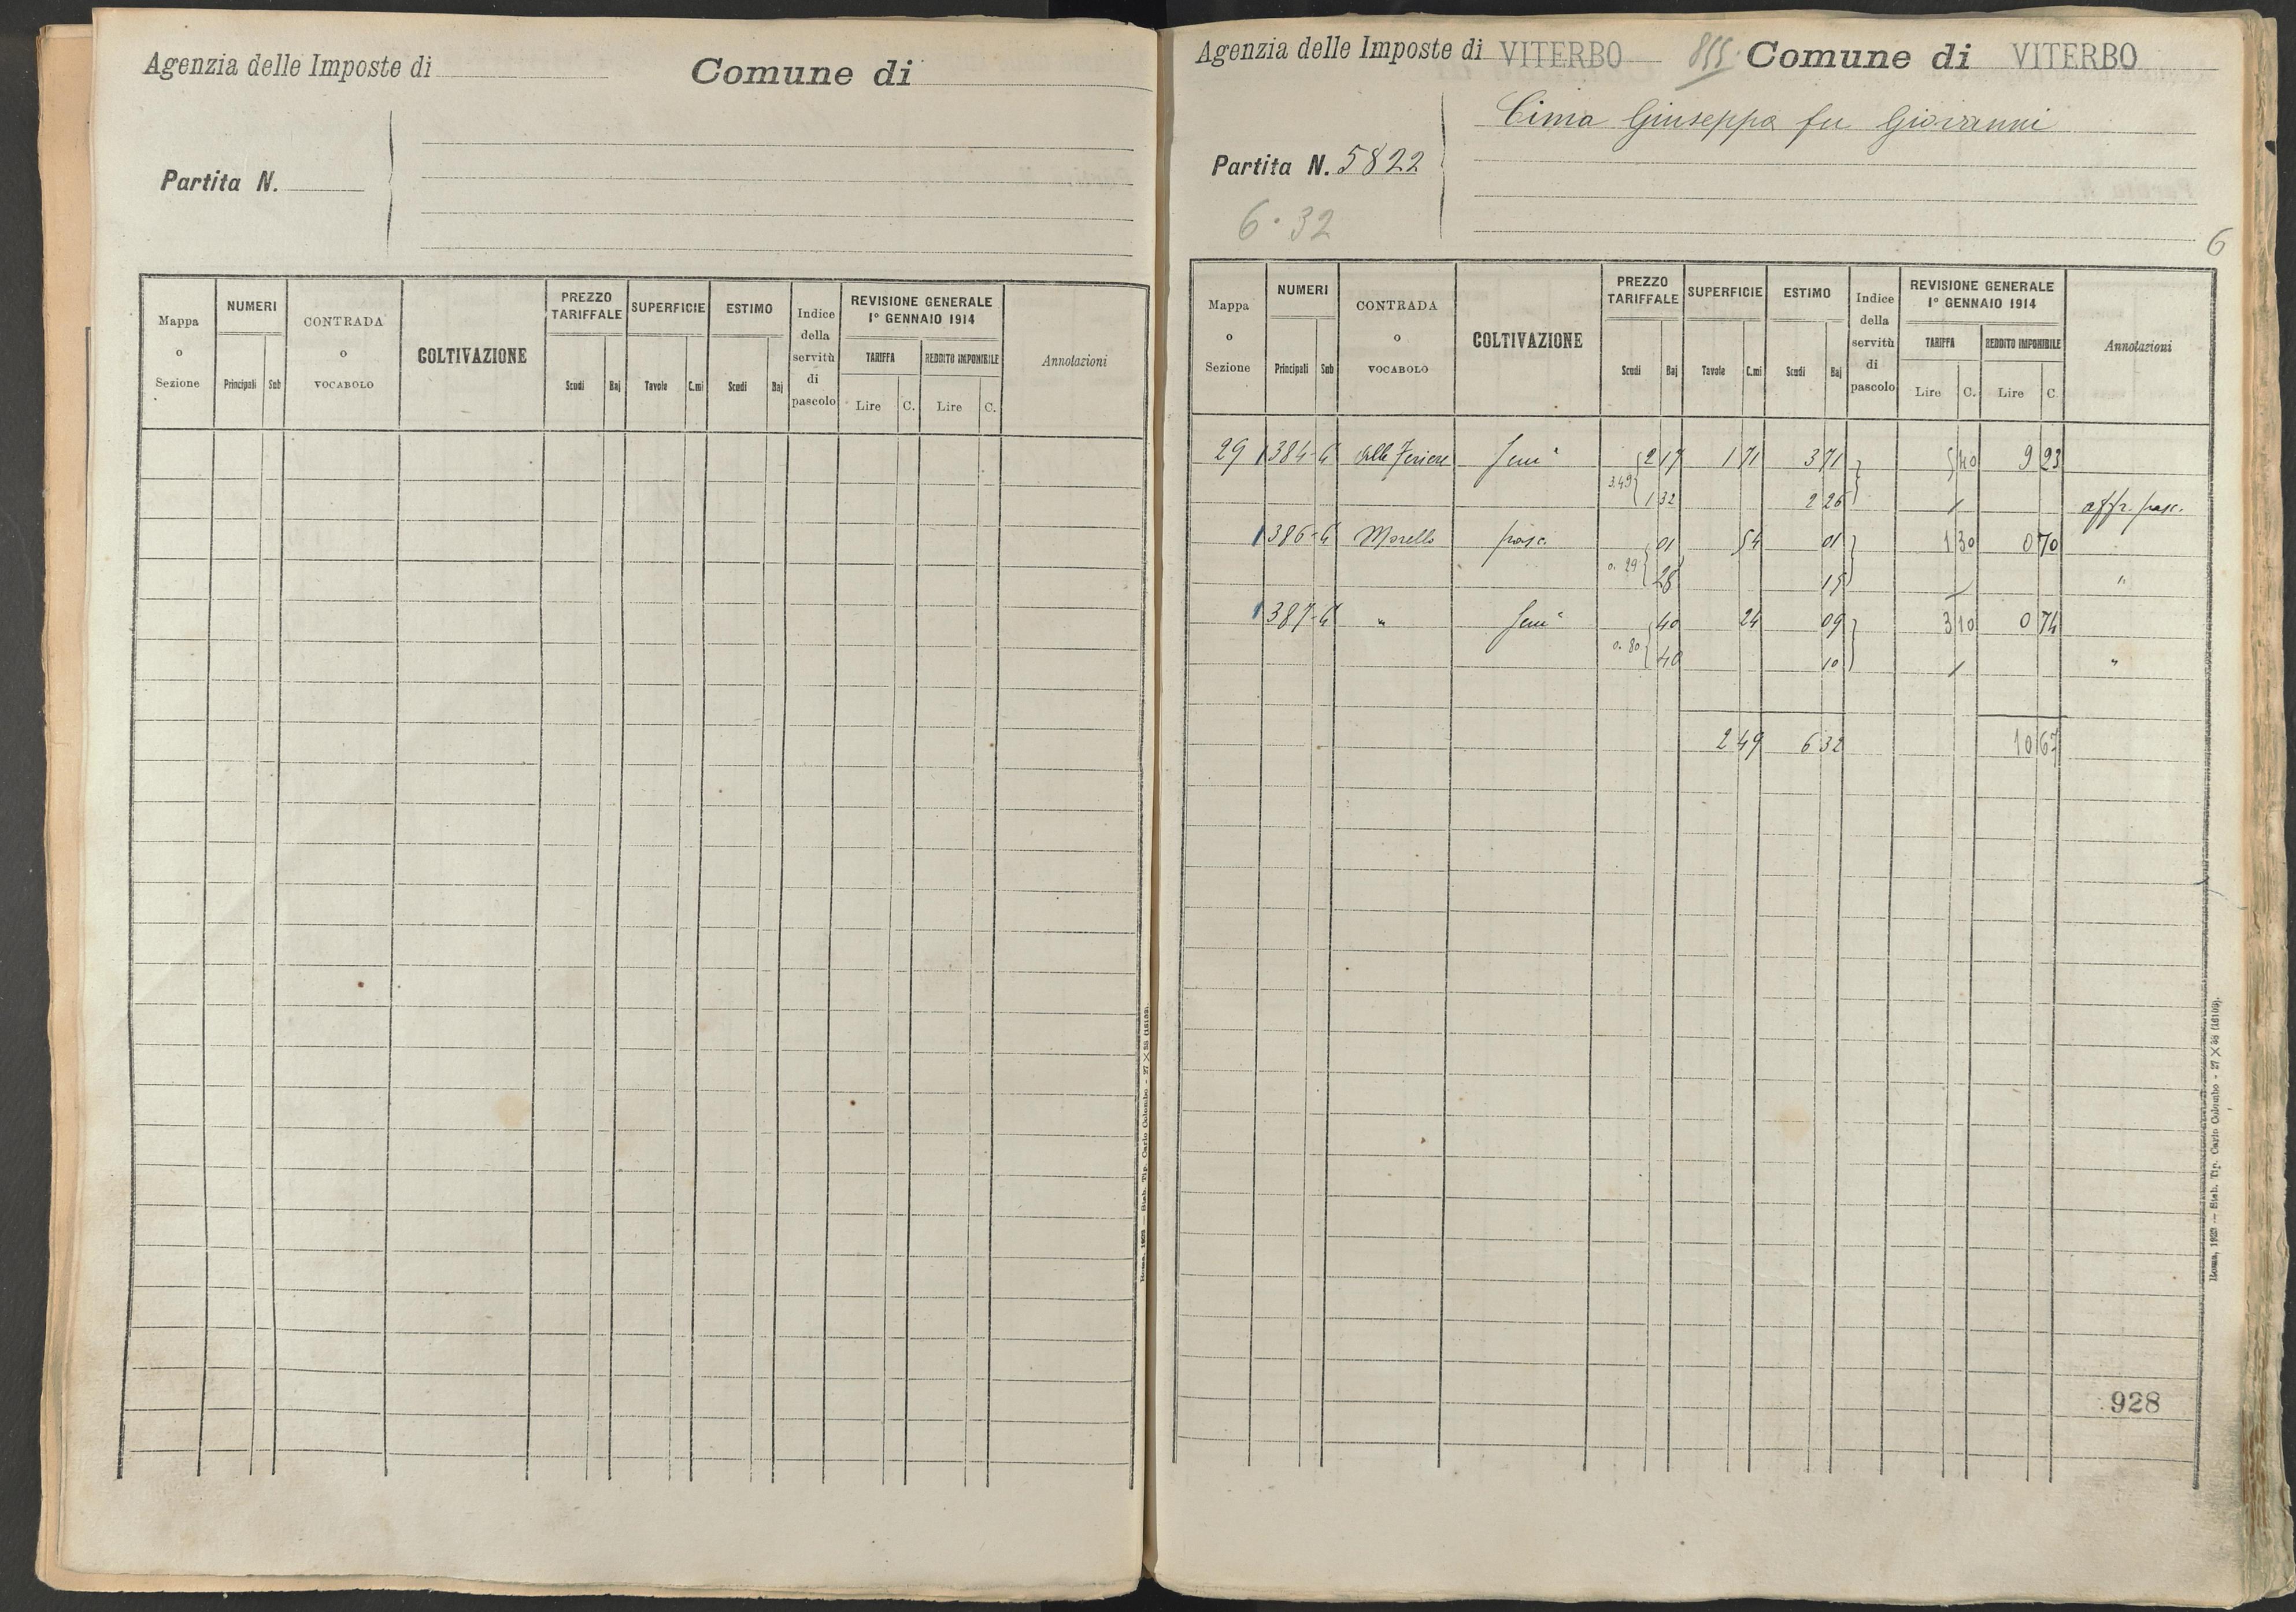 Agenzia delle Imposte di
Comune di
Partita N.
Mappa o Sezione
NUMERI
Principali Sub
CONTRADA o VOCABOLO
COLTIVAZIONE
PREZZO TARIFFALE
Scudi Baj
SUPERFICIE
Tavole C.mi
ESTIMO
Scudi Baj
Indice della servitù di pascolo
REVISIONE GENERALE
1° GENNAIO 1914
TARIFFA
Lire C.
REDDITO IMPONIBILE
Lire C.
Annotazioni
Roma, 1923 — Stab. Tip. Carlo Colombo - 27 X 38 (15109).
Agenzia delle Imposte di VITERBO
855. Comune di VITERBO
Cima Giuseppa fu Giovanni
Partita N. 5822
6.32
6
Mappa o Sezione
NUMERI
Principali Sub
CONTRADA o VOCABOLO
COLTIVAZIONE
PREZZO TARIFFALE
Scudi Baj
SUPERFICIE
Tavole C.mi
ESTIMO
Scudi Baj
Indice della servitù di pascolo
REVISIONE GENERALE
1° GENNAIO 1914
TARIFFA
Lire C.
REDDITO IMPONIBILE
Lire C.
Annotazioni
29 1384 2 17 1 71 3 71 5 40 9 23
3.49 1 32 2 26 affr. pasc.
1386 Morello pasc. 01 54 01 1 30 0 70
0.29 28 15 "
1387 " 40 24 09 3 10 0 74
0.80 40 10 "
2 49 6 32 10 67
928
Roma, 1923 — Stab. Tip. Carlo Colombo - 27 X 38 (15109).